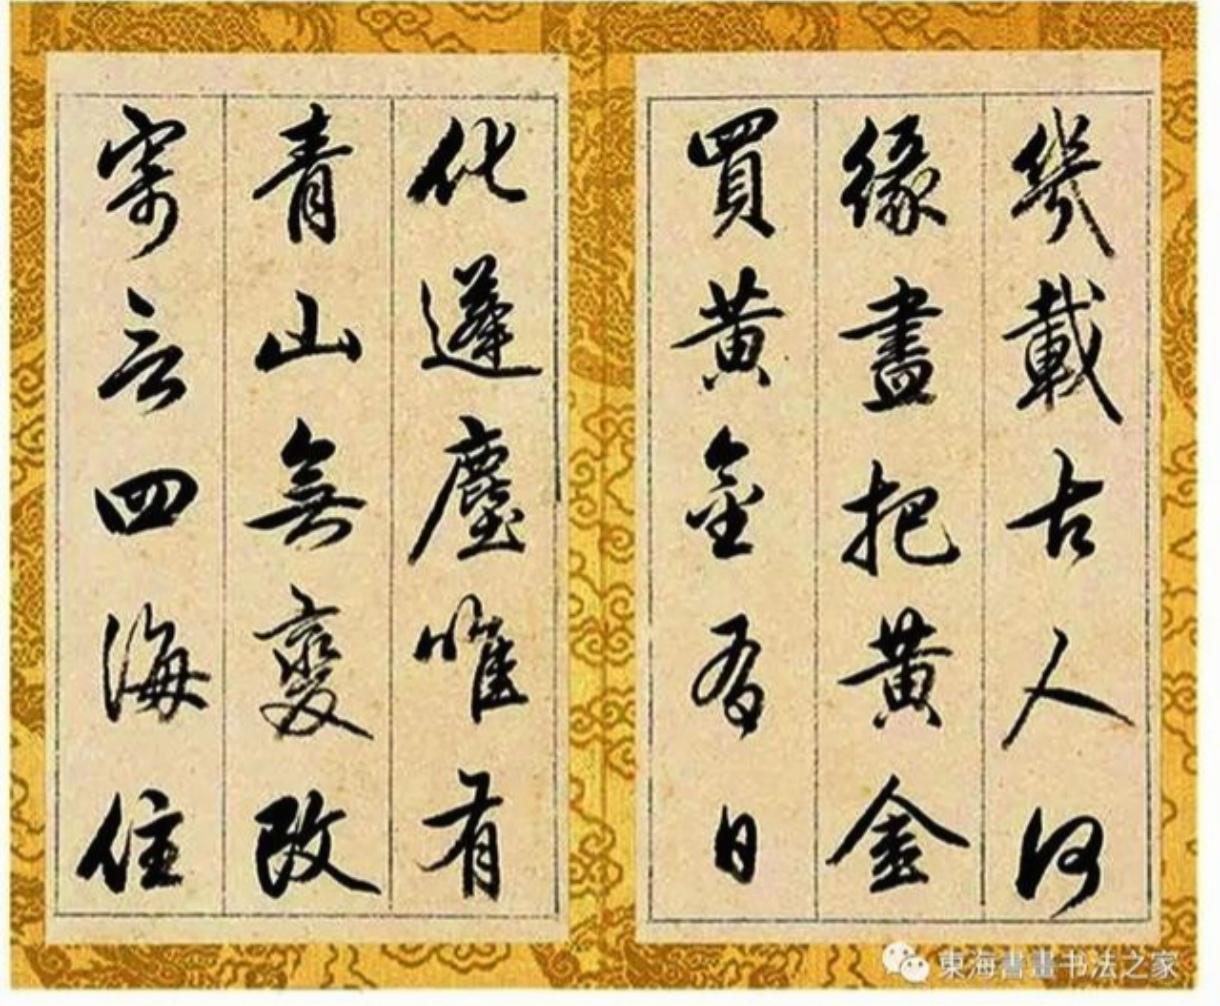 幾載古人何
緣盡把黃金
買黃金有日
化蓬塵唯有
青山無變改
寄言四海住
東海書畫书法之家